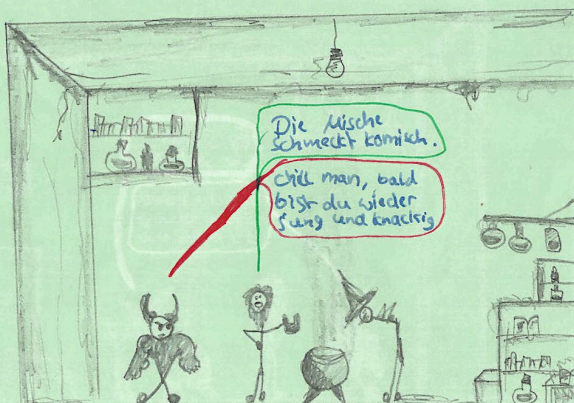 Die Mische
schmeckt komisch.
chill man, bald
bist du wieder
jung und knackig